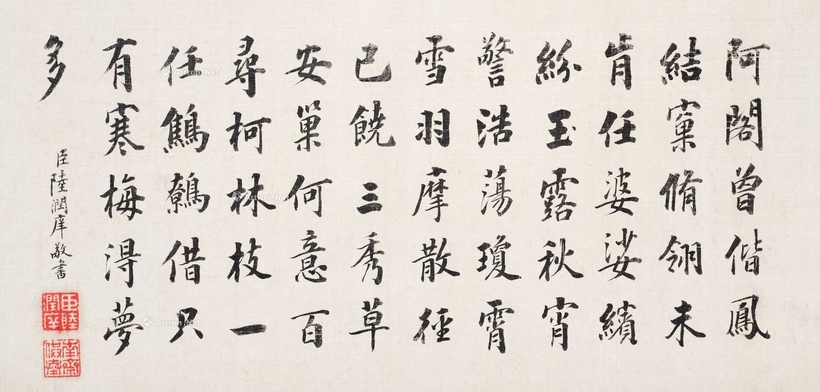 阿閣曾偕鳳
結窠脩翎未
肯任婆娑繽
紛玉露秋宵
警浩蕩瓊霄
雪羽摩散徑
已饒三秀草
安巢何意百
尋柯林枝一
任鷦鷯借只
有寒梅得夢
多
臣陸潤庠敬書
臣陸潤庠